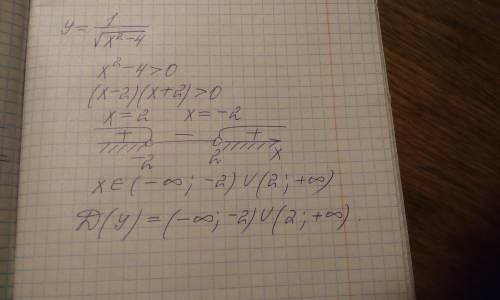 y = 1/√(x²-4)
x²-4>0
(x-2)(x+2)>0
x=2 x=-2
+ − +
-2 2 x
x∈(-∞; -2)∪(2; +∞)
D(y)=(-∞; -2)∪(2; +∞).